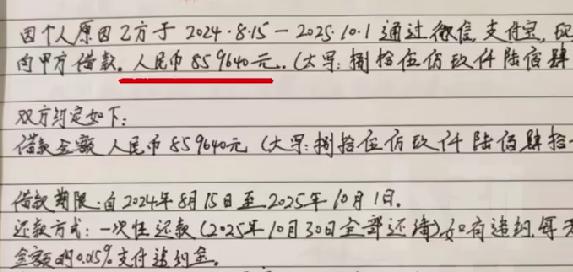 因个人原因乙方于2024.8.15—2025.10.1通过微信,支付宝,现
向甲方借款,人民币859640元.(大写:捌拾伍仟玖仟陆佰肆
双方约定如下:
借款金额人民币859640元(大写:捌拾伍仟玖仟陆佰肆拾
借款期限:自2024年8月15日至2025年10月1日.
还款方式:一次性还款(2025年10月30日全部还清)如有违约,每天
金额的0.015%支付违约金.